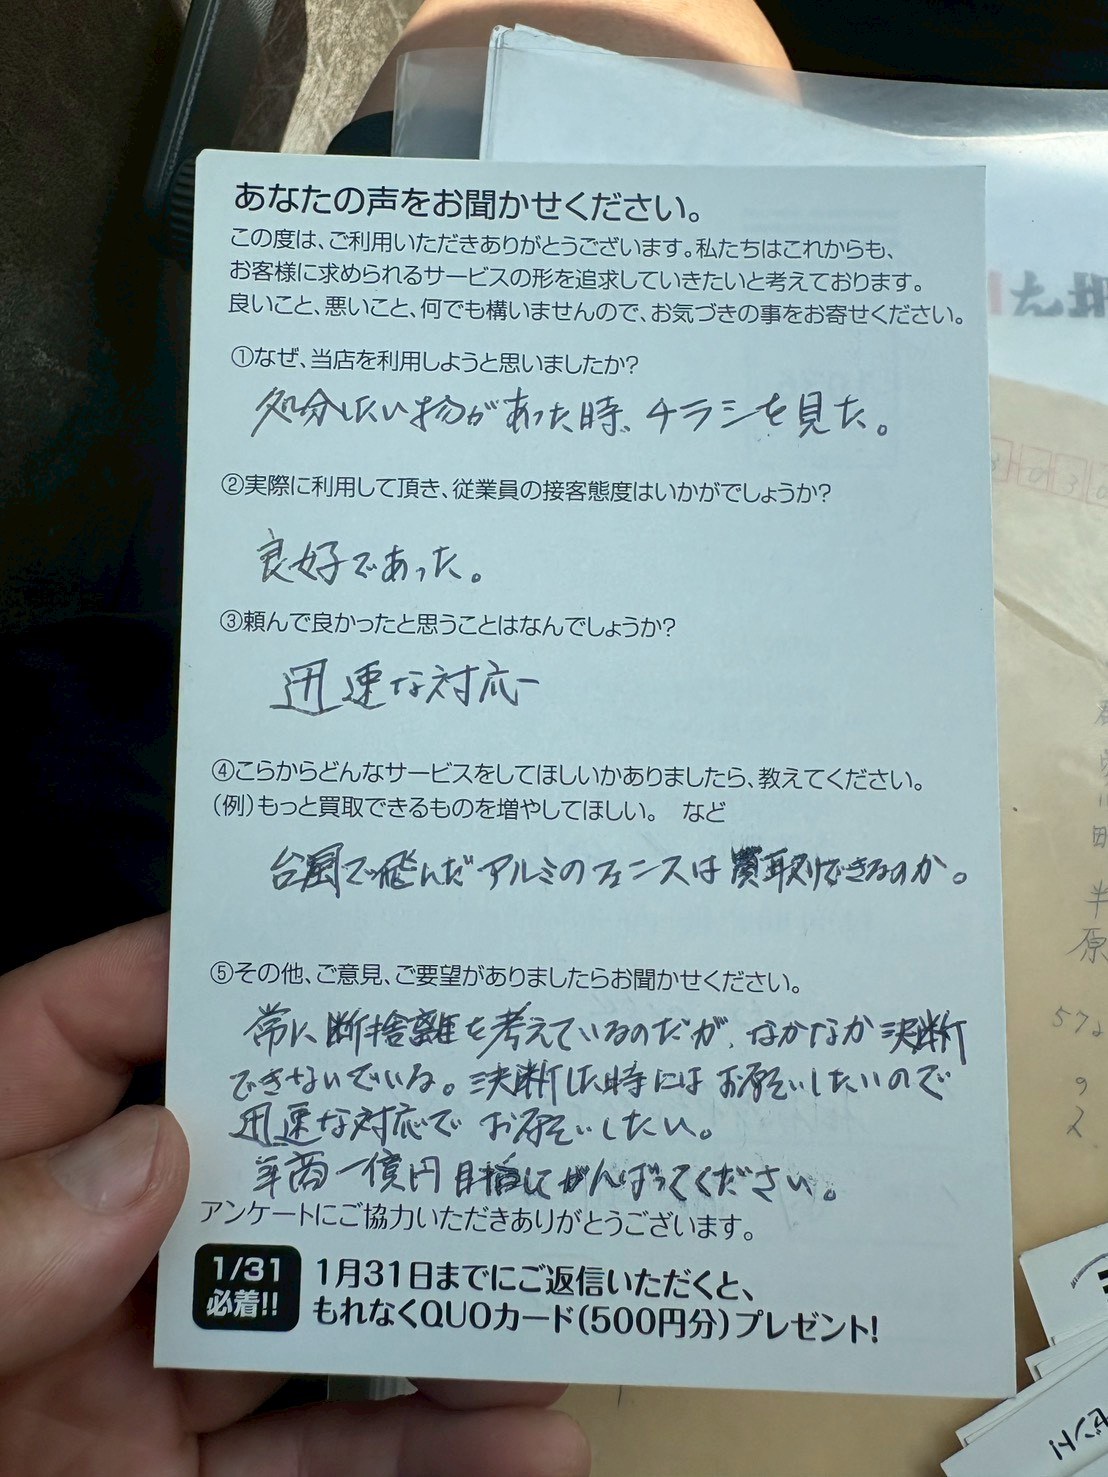 あなたの声をお聞かせください。
この度は、ご利用いただきありがとうございます。私たちはこれからも、
お客様に求められるサービスの形を追求していきたいと考えております。
良いこと、悪いこと、何でも構いませんので、お気づきの事をお寄せください。
①なぜ、当店を利用しようと思いましたか?
処分したい物があった時、チラシを見た。
②実際に利用して頂き、従業員の接客態度はいかがでしょうか?
良好であった。
③頼んで良かったと思うことはなんでしょうか?
迅速な対応
④こらからどんなサービスをしてほしいかありましたら、教えてください。
(例)もっと買取できるものを増やしてほしい。 など
台風で飛んだアルミのフェンスは買取りできるのか。
⑤その他、ご意見、ご要望がありましたらお聞かせください。
常に断捨離を考えているのだが、なかなか決断
できないでいる。決断した時にはお願いしたいので
迅速な対応でお願いしたい。
年商一億円目指してがんばってください。
アンケートにご協力いただきありがとうございます。
1/31
必着!!
1月31日までにご返信いただくと、
もれなくQUOカード(500円分)プレゼント!
原
ゼント!